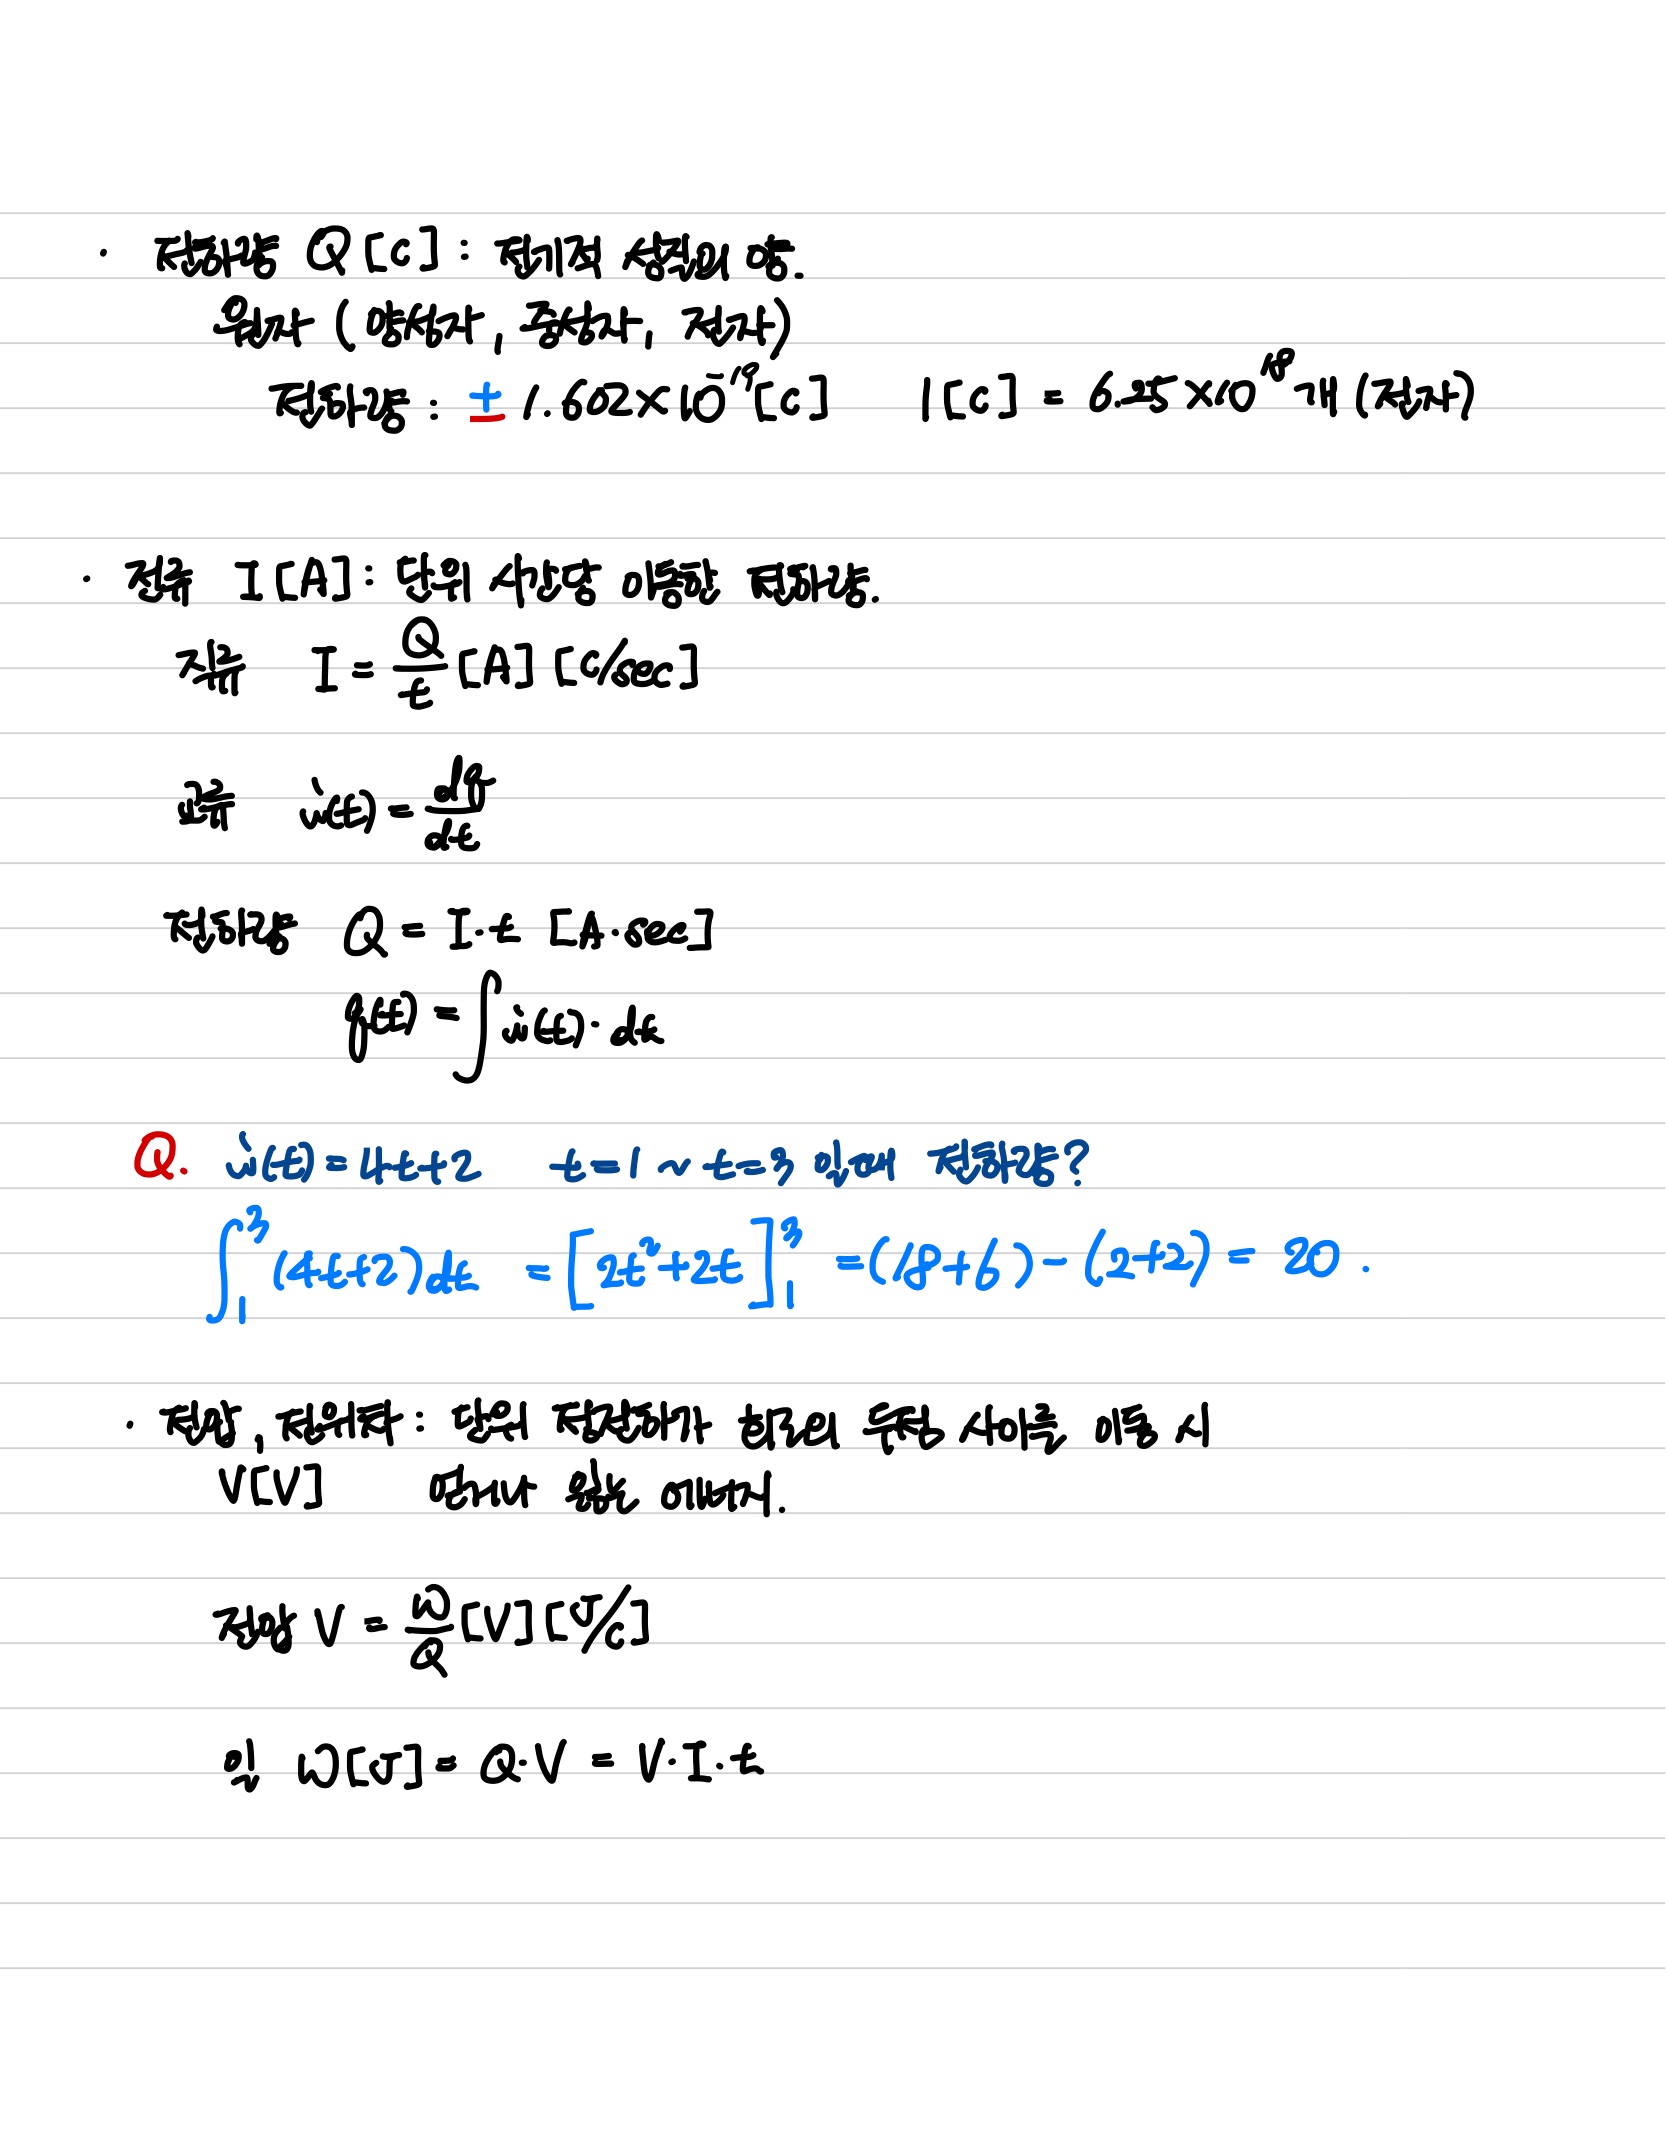 · 전하량 Q [C] : 전기적 성질의 양.
원자 ( 양성자, 중성자, 전자)
전하량 : ± 1.602×10⁻¹⁹[C] 1[C] = 6.25 ×10¹⁸개 (전자)
· 전류 I [A] : 단위 시간당 이동한 전하량.
직류 I = Q/t [A] [C/sec]
교류 i(t) = dq/dt
전하량 Q = I·t [A·sec]
q(t) = ∫ i(t)· dt
Q. i(t) = 4t+2 t=1 ~ t=3 일때 전하량?
∫₁³ (4t+2)dt = [2t²+2t]₁³ = (18+6) - (2+2) = 20 .
· 전압, 전위차 : 단위 정전하가 회로의 두점 사이를 이동 시
V[V] 얻거나 잃는 에너지.
전압 V = W/Q [V] [J/C]
일 W[J] = Q·V = V·I·t